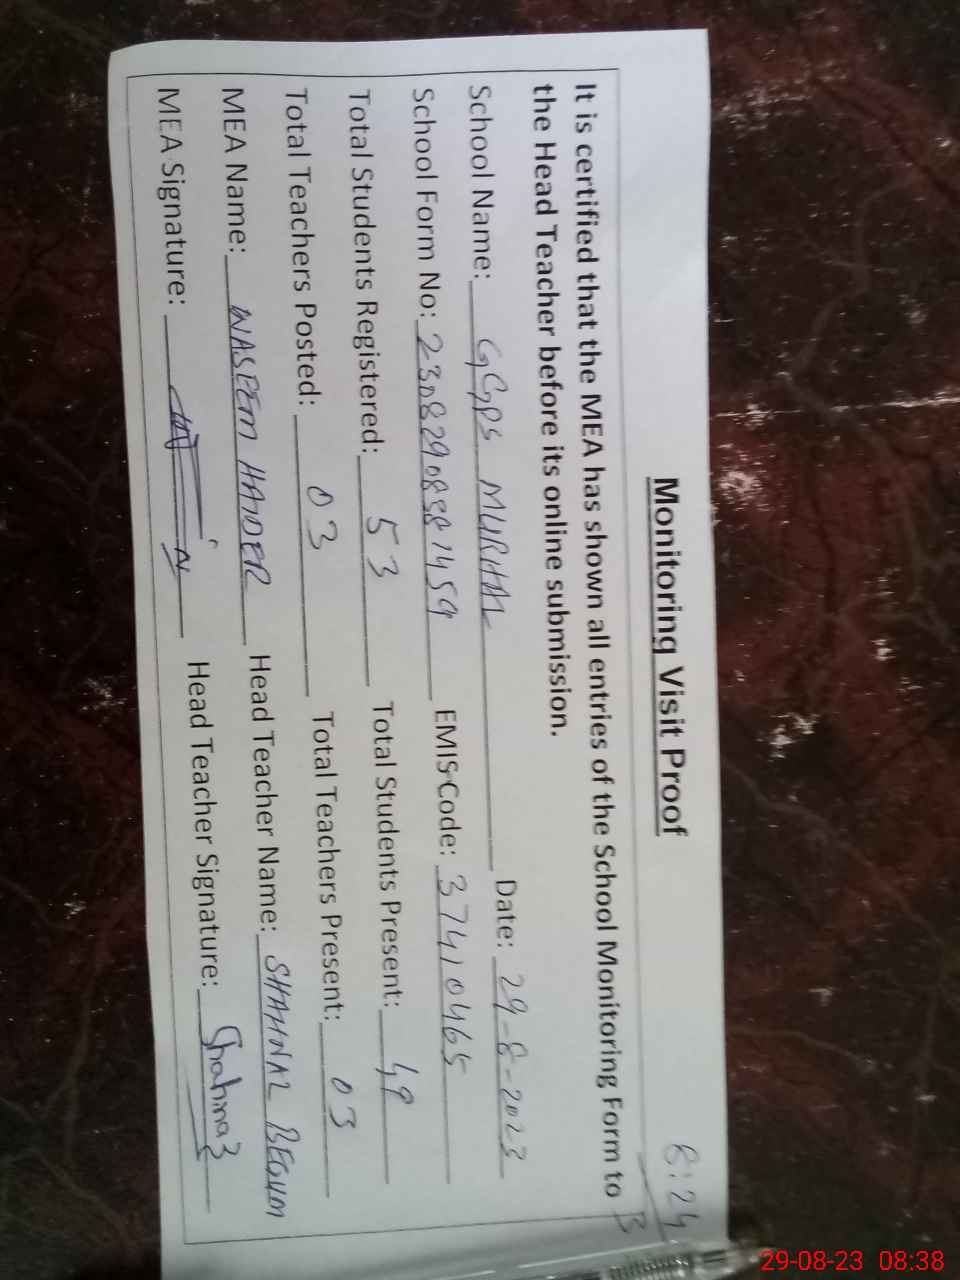 8:24
Monitoring Visit Proof
It is certified that the MEA has shown all entries of the School Monitoring Form to
the Head Teacher before its online submission.
School Name: GGPS MURHAL Date: 29-8-2023
School Form No: EMIS Code: 37410465
Total Students Registered: 53 Total Students Present: 49
Total Teachers Posted: 03 Total Teachers Present: 03
MEA Name: WASEEM HAIDER Head Teacher Name: SHAHNAZ BEGUM
MEA Signature: Head Teacher Signature: Shahnaz
29-08-23 08:38